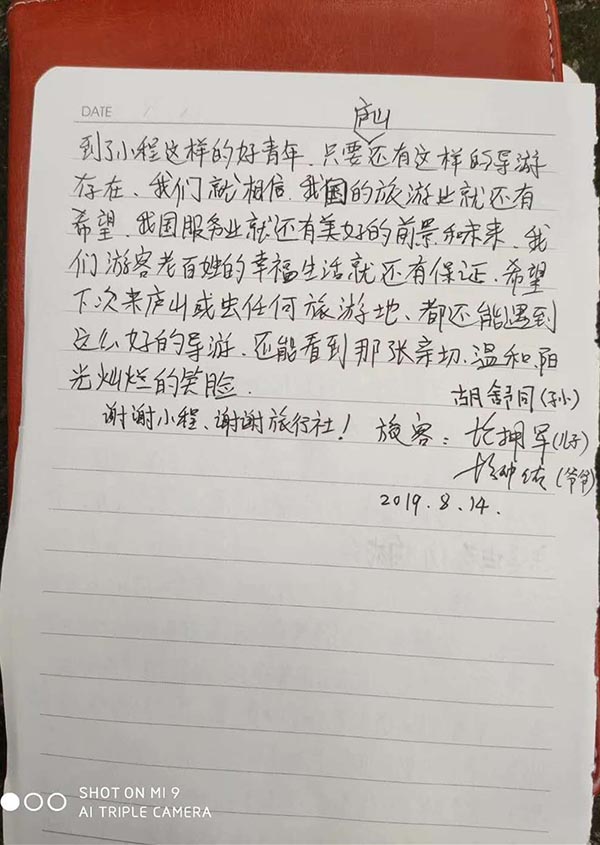 DATE
庐山
到了小程这样的好青年、只要还有这样的导游
存在、我们就相信、我国的旅游业就还有
希望、我国服务业就还有美好的前景和未来、我
们游客老百姓的幸福生活就还有保证、希望
下次来庐山或去任何旅游地、都还能遇到
这么好的导游、还能看到那张亲切、温和、阳
光灿烂的笑脸.
胡舒同(孙)
谢谢小程、谢谢旅行社! 旅客: 拥军(儿子)
(爷爷)
2019.8.14.
SHOT ON MI 9
AI TRIPLE CAMERA